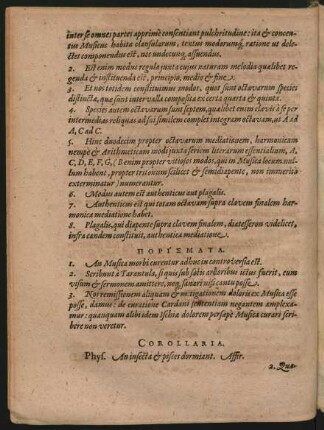 inter se omnes partes apprimè consentiant pulchritudine: ita & concen-
tus Musicus habita clausularum, textus modorumq́, ratione ut dele-
ctes componendus est, nec undecunq; assuendus.
2. Est enim modus regula juxta cujus naturam melodia quælibet re-
genda & instituenda est, principio, medio & fine.
3. Et nos totidem constituimus modos, quot sunt octavarum species
distinctæ, quæ sunt intervalla composita ex certa quarta & quinta.
4. Species autem octavarum sunt septem, quælibet enim clavis à se per
intermedias reliquas ad sui similem complet integram octavam, ut A ad
A, C ad C.
5. Hinc duodecim propter octavarum mediationem, harmonicam
nempè & Arithmeticam modi juxta seriem literarum essentialium, A,
C, D, E, F, G, (B enim propter vitiosos modos, qui in Musica locum nul-
lum habent, propter tritonum scilicet & semidiapente, non immeritò
exterminatur) numerantur.
6. Modus autem est authenticus aut plagalis.
7. Authenticus est qui totam octavam supra clavem finalem har-
monica mediatione habet.
8. Plagalis, qui diapente supra clavem finalem, diatessaron videlicet,
infra eandem constituit, authentica mediatione.
ΠΟΡΙΣΜΑΤΑ.
1. An Musica morbi curentur adhuc in controversia est.
2. Scribunt à Tarantula, si quis sub sabi arboribus ictus fuerit, cum
visum & sermonem amittere, neq, sanari nisi cantu posse.
3. Nos remissionem aliquam & mitigationem doloris ex Musica esse
posse, damus: de curatione Cardani sententiam negantem amplexa-
mur: quanquam alibi idem Ischia dolorem persæpè Musica curari scri-
bere non veretur.
COROLLARIA.
Phys. An insecta & pisces dormiant. Affir.
2. Quæ-